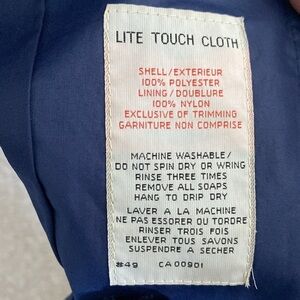 LITE TOUCH CLOTH
SHELL/EXTERIEUR
100% POLYESTER
LINING/DOUBLURE
100% NYLON
EXCLUSIVE OF TRIMMING
GARNITURE NON COMPRISE
MACHINE WASHABLE/
DO NOT SPIN DRY OR WRING
RINSE THREE TIMES
REMOVE ALL SOAPS
HANG TO DRIP DRY
LAVER A LA MACHINE
NE PAS ESSORER OU TORDRE
RINSER TROIS FOIS
ENLEVER TOUS SAVONS
SUSPENDRE A SECHER
#49 CA00901